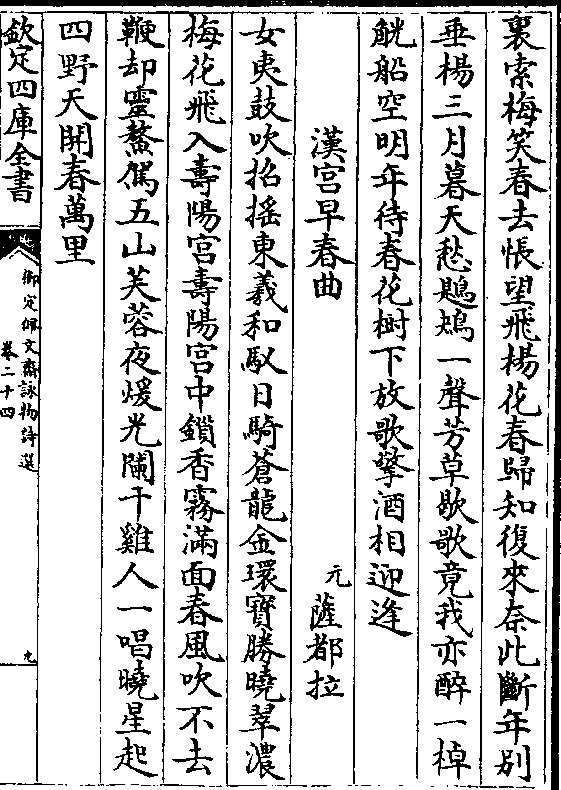 裏索梅笑春去悵望飛楊花春歸知復來奈此斷年别
垂楊三月暮天愁鶗鴂一聲芳草歇歌竟我亦醉一棹
觥船空明年待春花樹下放歌擎酒相迎逢
漢宫早春曲
元 薩都拉
女夷鼓吹招摇東羲和馭日騎蒼龍金環寳勝曉翠濃
梅花飛入壽陽宫壽陽宫中鎖香霧滿面春風吹不去
鞭却靈鰲駕五山芙蓉夜煖光闌干雞人一唱曉星起
四野天開春萬里
欽定四庫全書
御定佩文齋詠物詩選
卷二十四
九